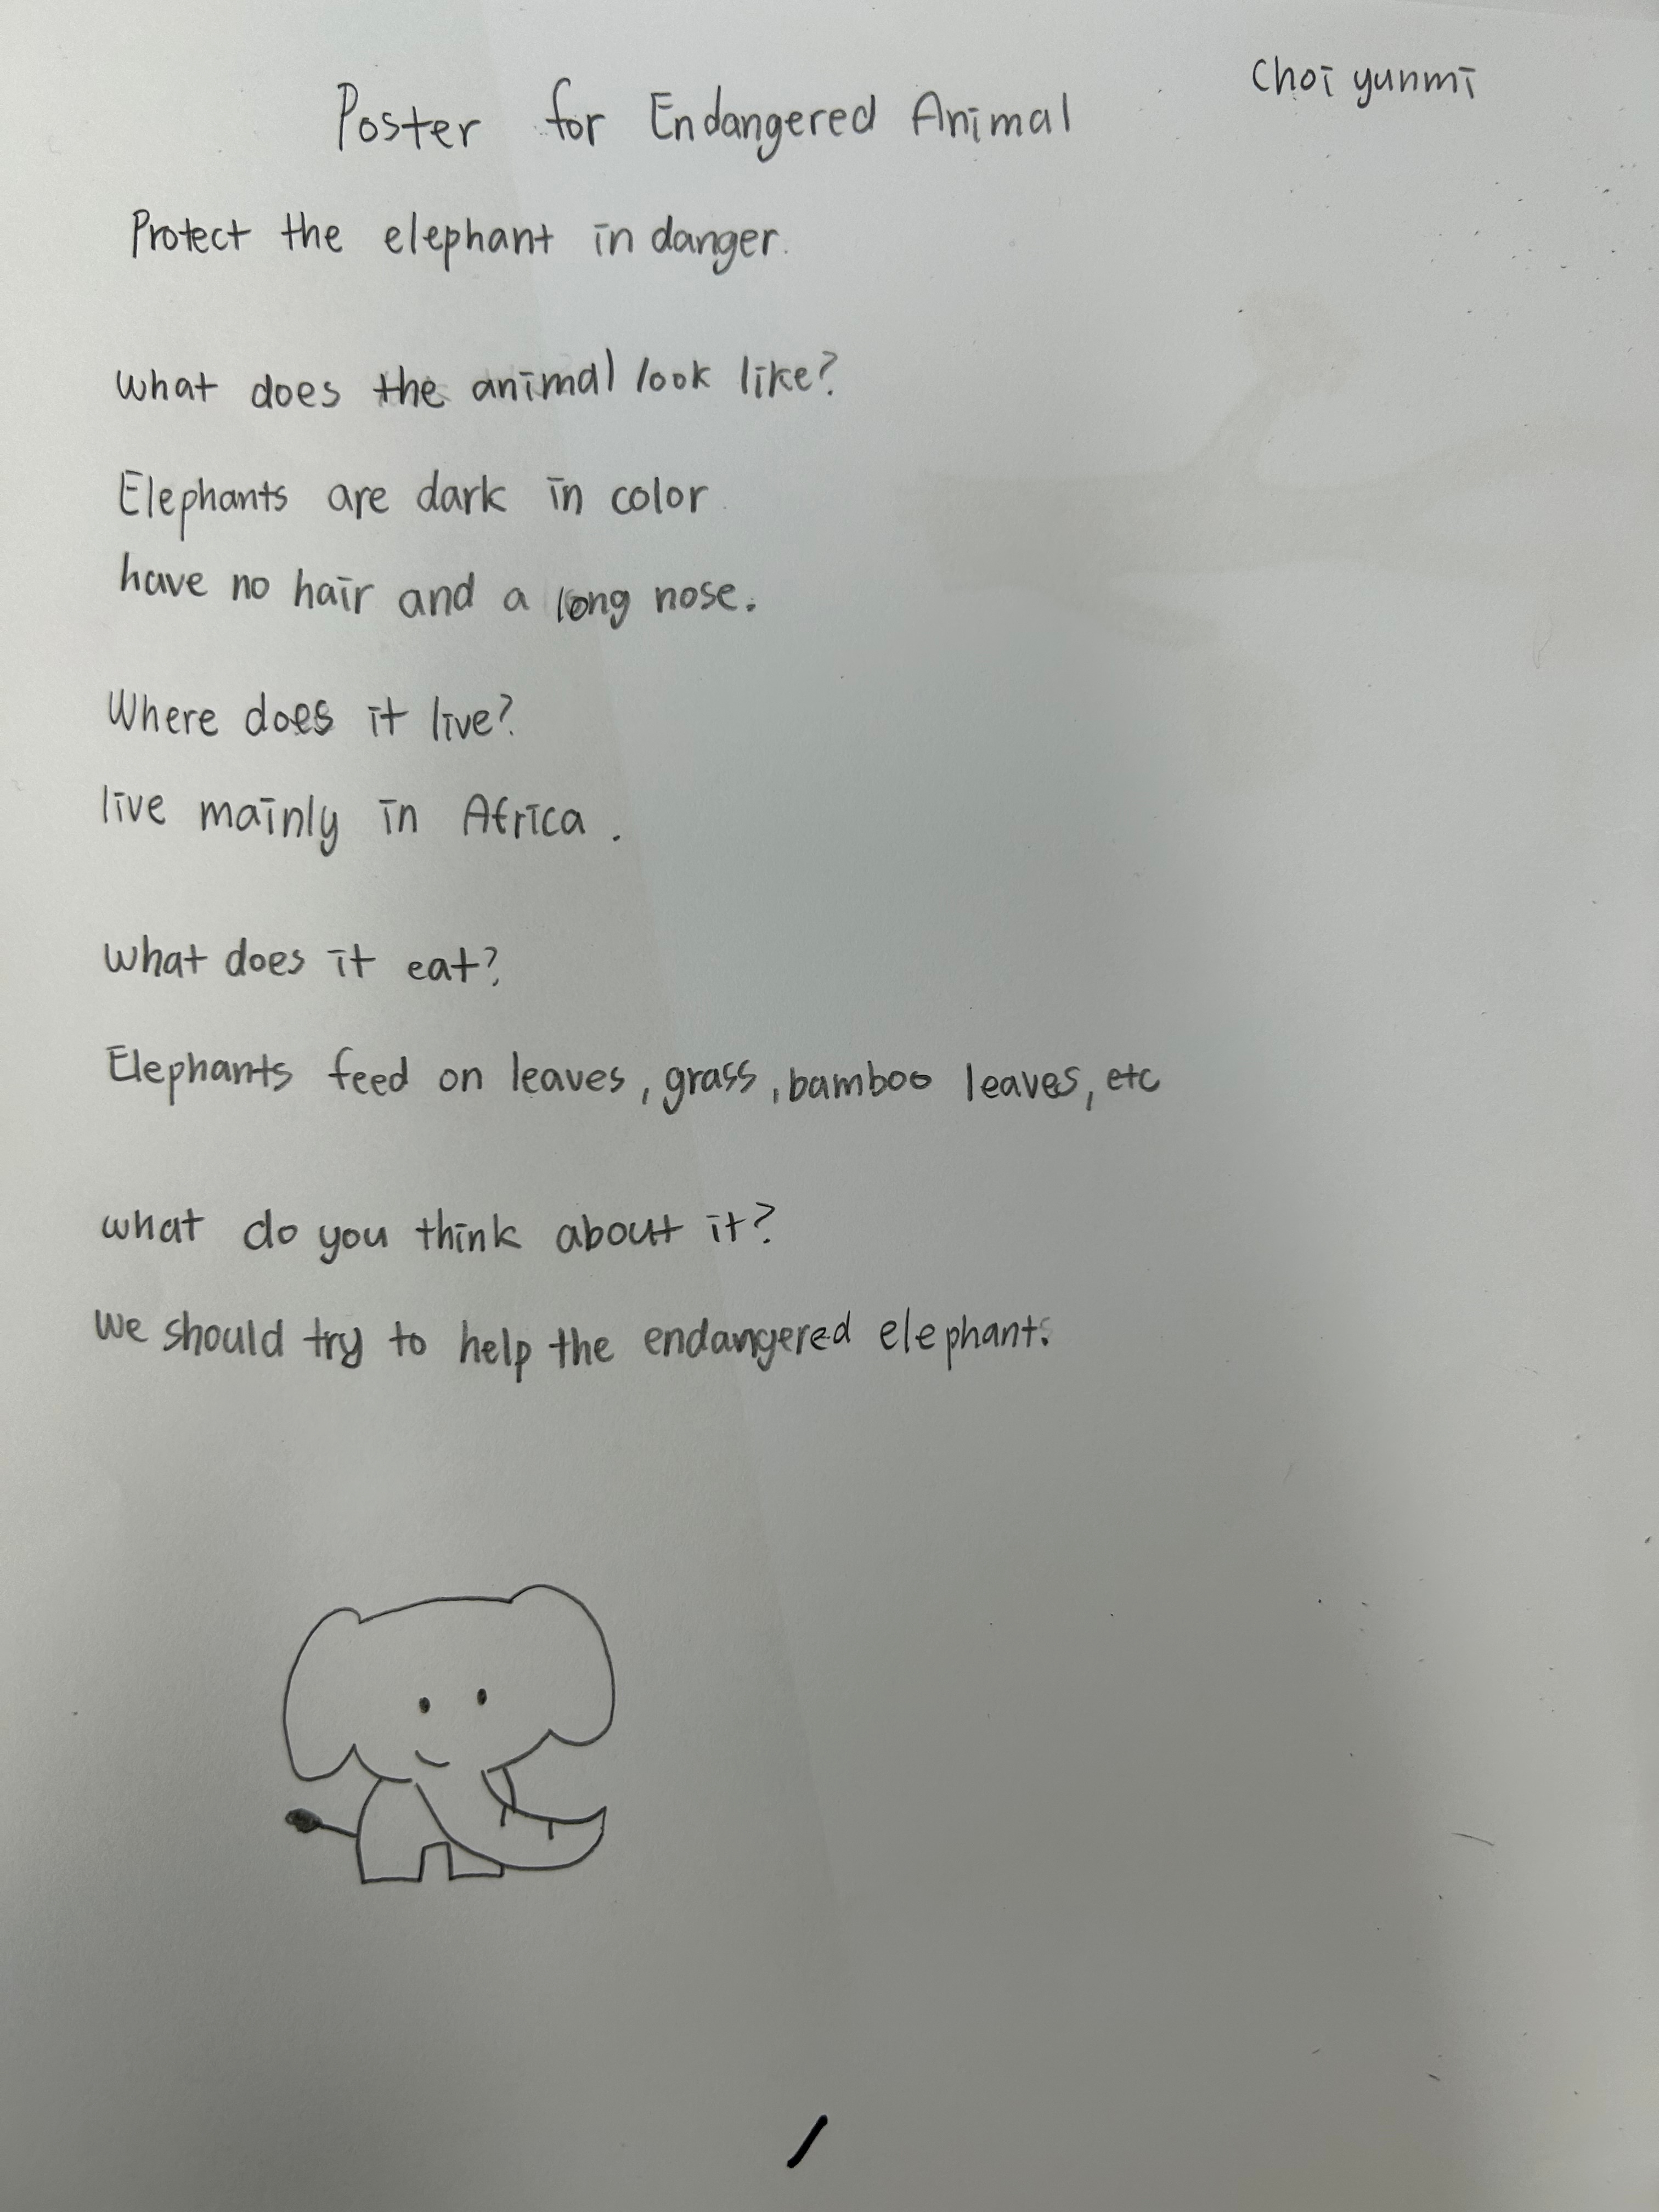 Choi yunmi
Poster for Endangered Animal
Protect the elephant in danger.
what does the animal look like?
Elephants are dark in color
have no hair and a long nose.
Where does it live?
live mainly in Africa.
what does it eat?
Elephants feed on leaves, grass, bamboo leaves, etc
what do you think about it?
we should try to help the endangered elephant.